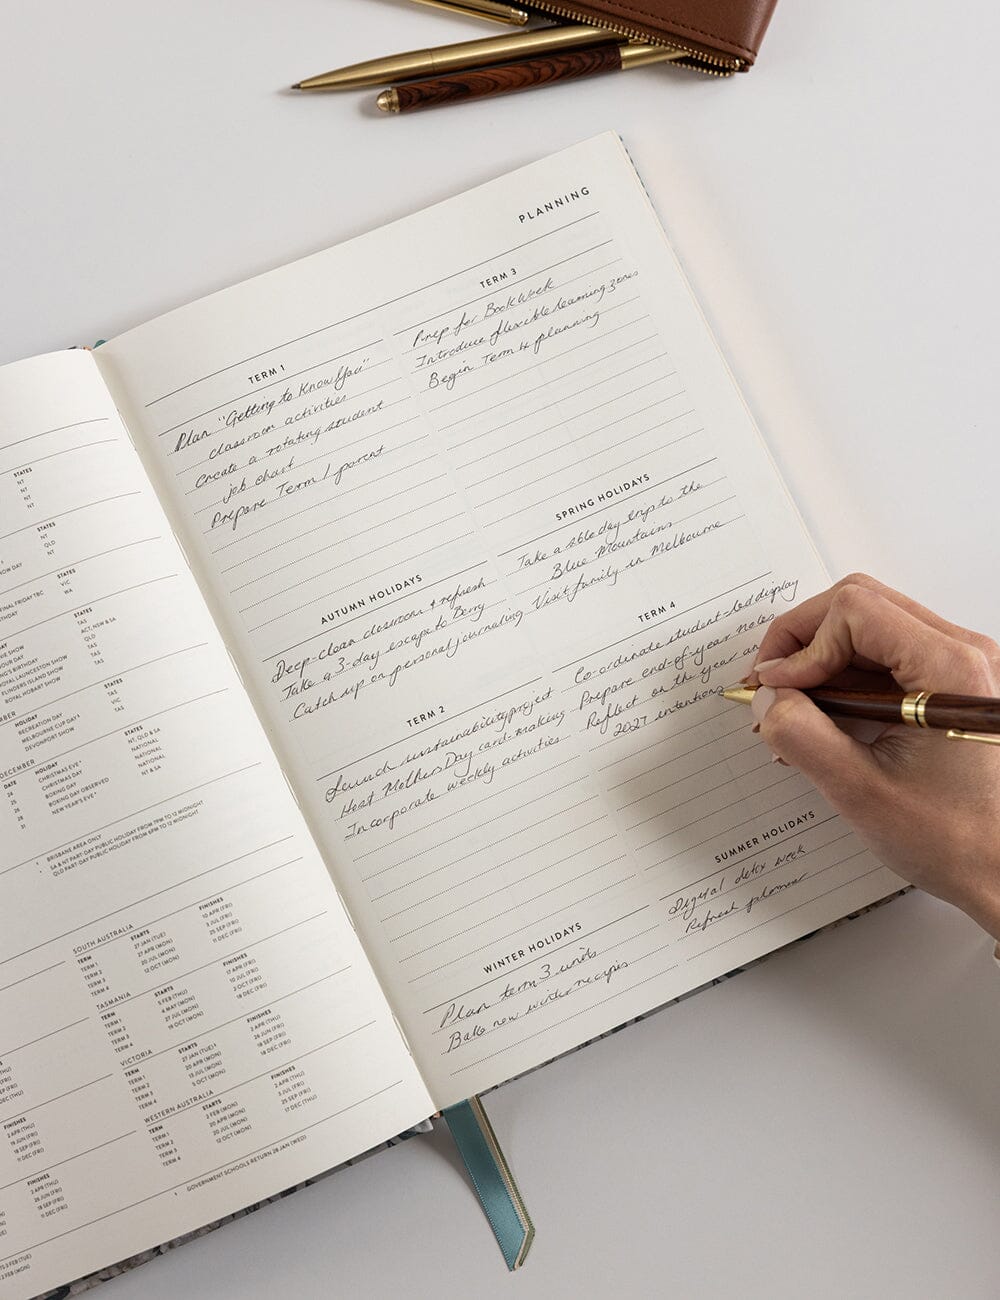 STATES
NT
NT
NT
NT
STATES
NT
QLD
NT
STATES
VIC
WA
FINAL FRIDAY TBC
STATES
TAS
ACT, NSW & SA
QLD
TAS
TAS
TAS
ROYAL LAUNCESTON SHOW
FLINDERS ISLAND SHOW
ROYAL HOBART SHOW
HOLIDAY STATES
RECREATION DAY TAS
MELBOURNE CUP DAY VIC
DEVONPORT SHOW TAS
DECEMBER
DATE HOLIDAY STATES
24 CHRISTMAS EVE NT, QLD & SA
25 CHRISTMAS DAY NATIONAL
26 BOXING DAY NATIONAL
28 BOXING DAY OBSERVED NATIONAL
31 NEW YEAR'S EVE NT & SA
BRISBANE AREA ONLY
SA & NT PART-DAY PUBLIC HOLIDAY FROM 7PM TO 12 MIDNIGHT
QLD PART-DAY PUBLIC HOLIDAY FROM 6PM TO 12 MIDNIGHT
SOUTH AUSTRALIA
TERM STARTS FINISHES
TERM 1 27 JAN (TUE) 10 APR (FRI)
TERM 2 27 APR (MON) 3 JUL (FRI)
TERM 3 20 JUL (MON) 25 SEP (FRI)
TERM 4 12 OCT (MON) 11 DEC (FRI)
TASMANIA
TERM STARTS FINISHES
TERM 1 5 FEB (THU) 17 APR (FRI)
TERM 2 4 MAY (MON) 10 JUL (FRI)
TERM 3 27 JUL (MON) 2 OCT (FRI)
TERM 4 19 OCT (MON) 18 DEC (FRI)
VICTORIA
TERM STARTS FINISHES
TERM 1 27 JAN (TUE) 2 APR (THU)
TERM 2 20 APR (MON) 26 JUN (FRI)
TERM 3 13 JUL (MON) 18 SEP (FRI)
TERM 4 5 OCT (MON) 18 DEC (FRI)
WESTERN AUSTRALIA
TERM STARTS FINISHES
TERM 1 2 FEB (MON) 2 APR (THU)
TERM 2 20 APR (MON) 3 JUL (FRI)
TERM 3 20 JUL (MON) 25 SEP (FRI)
TERM 4 12 OCT (MON) 17 DEC (THU)
GOVERNMENT SCHOOLS RETURN 28 JAN (WED)
PLANNING
TERM 1
Plan "Getting to Know You"
classroom activities
Create a rotating student
job chart
Prepare Term 1 parent
AUTUMN HOLIDAYS
Deep-clean classroom & refresh
Take a 3-day escape to Berry
Catch up on personal journaling
TERM 2
Launch sustainability project
Host Mothers Day card-making
Incorporate weekly activities
WINTER HOLIDAYS
Plan term 3 units
Bake new winter recipes
TERM 3
Prep for Book Week
Introduce flexible learning zones
Begin Term 4 planning
SPRING HOLIDAYS
Take a day trip to the
Blue Mountains
Visit family in Melbourne
TERM 4
Co-ordinate student-led display
Prepare end-of-year notes
Reflect on the year an
2027 intentions
SUMMER HOLIDAYS
Digital detox week
Refresh planner